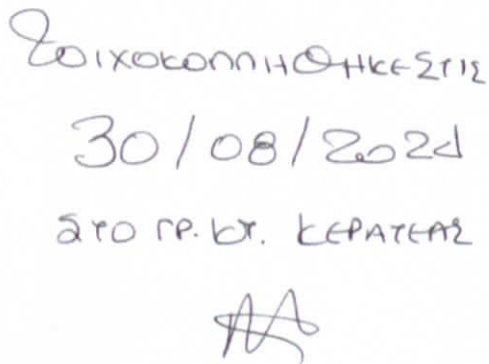 ΤΟΙΧΟΚΟΛΛΗΘΗΚΕ ΣΤΙΣ
30/08/2021
ΣΤΟ ΓΡ. ΚΤ. ΚΕΡΑΤΕΑΣ